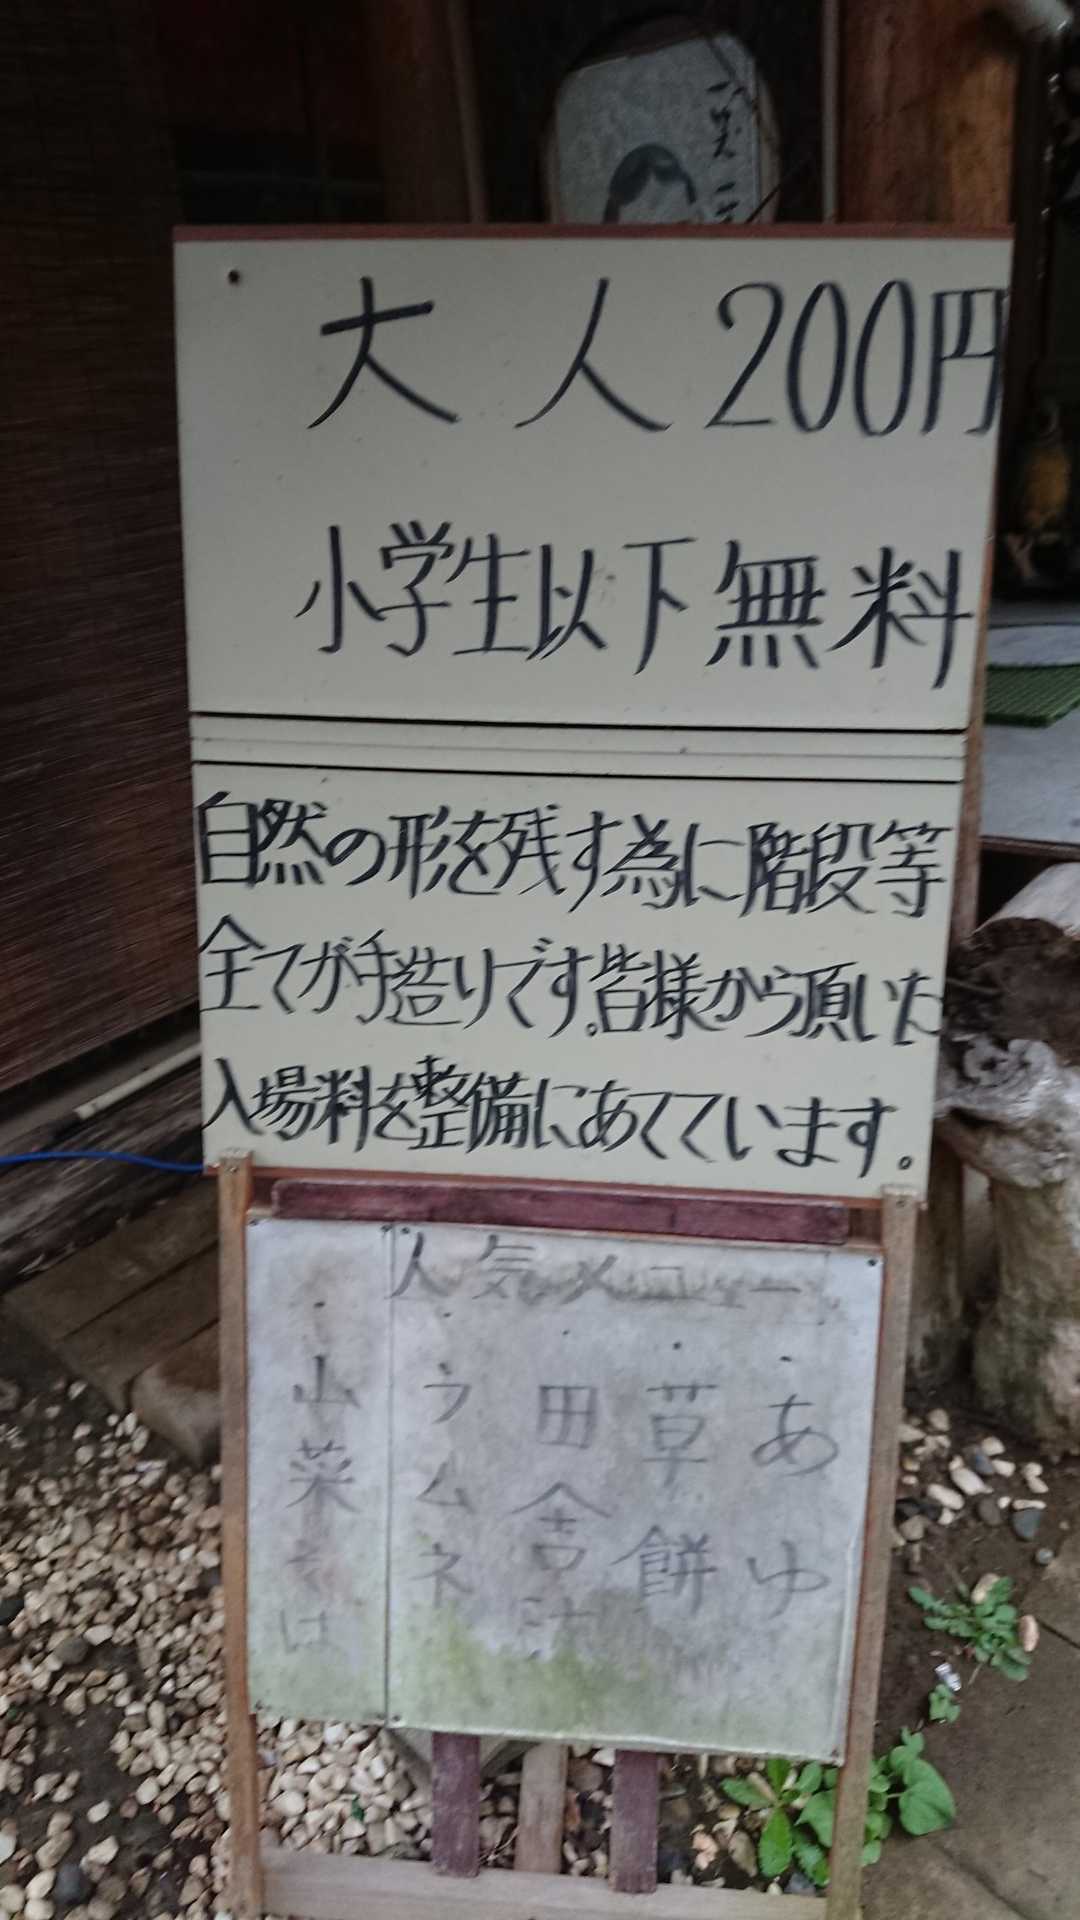 一笑
大人200円
小学生以下無料
自然の形を残す為に階段等
全てが手造りです。皆様から頂いた
入場料を整備にあてています。
人気メニュー
・あゆ
・草餅
・田舎汁
・ラムネ
・山菜そば